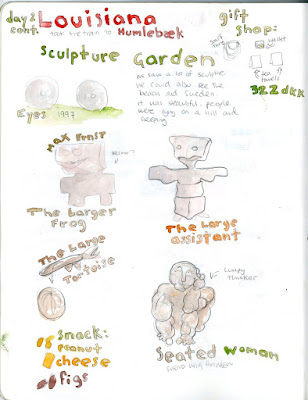 day 2 cont.
Louisiana
took the train to Humlebæk
gift shop:
wallet
tea towels
322 dkk
Sculpture Garden
we saw a lot of sculpture
we could also see the
beach and Sweden.
it was beautiful. people
were lying on a hill and
sleeping
Eyes 1997
Max Ernst
The Larger Frog
The Large assistant
The Large Tortoise
Lumpy thinker
Snack:
peanut
cheese
figs
Seated Woman